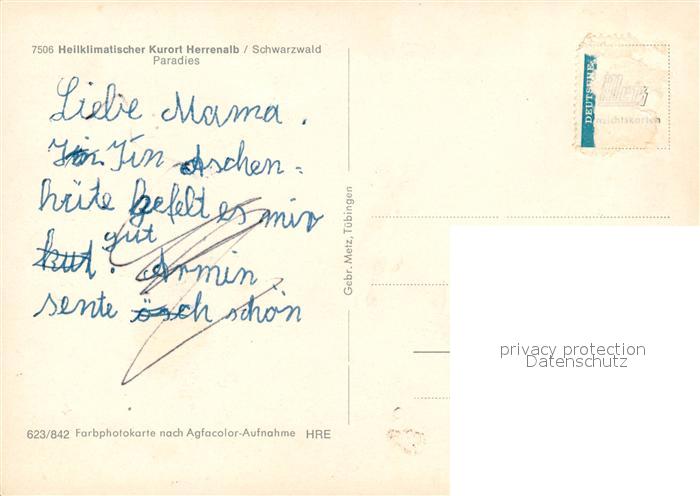 7506 Heilklimatischer Kurort Herrenalb / Schwarzwald
Paradies
Liebe Mama.
In Jin Aschen=
hüte gefelt es mir
gut
kut. Armin
sente ösch schön
623/842 Farbphotokarte nach Agfacolor-Aufnahme HRE
Gebr. Metz, Tübingen
DEUTSCHE
Metz
Ansichtskarten
privacy protection
Datenschutz